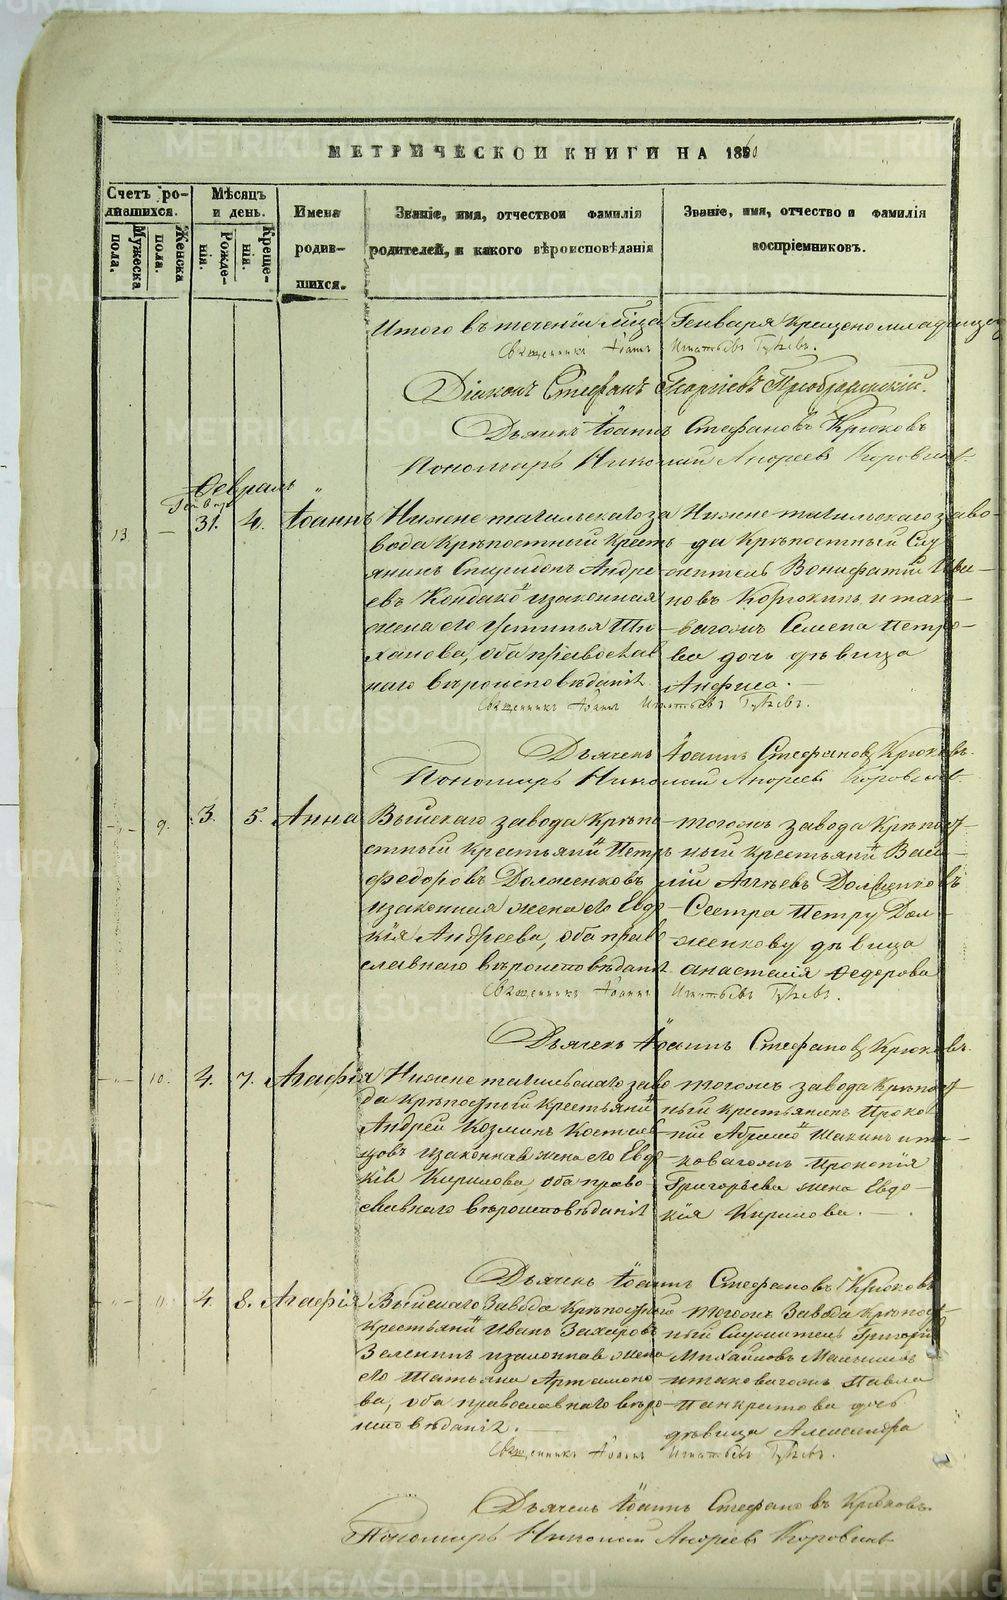 МЕТРИЧЕСКОЙ КНИГИ НА 1860
Счетъ родившихся.
Мужеска пола.
Женска пола.
Мѣсяцъ и день.
Рожденія.
Крещенія.
Имена родившихся.
Званіе, имя, отчествои фамилія родителей, и какого вѣроисповѣданія
Званіе, имя, отчество и фамилія воспріемниковъ.
Итого въ теченіи мѣсяца Генваря крещено младенцевъ
Священникъ Іоаннъ Игнатьевъ
Діаконъ Стефанъ Георгіевъ Преображенскій.
Дьячекъ Іоаннъ Стефановъ Крюковъ
Пономарь Николай Андреевъ Коровинъ.
Февраль
Генваря
13. — 31. 4. Іоаннъ
Нижне тагильскаго за
вода крѣпостный Кресть
янинъ Спиридонъ Андре
евъ Кондако изаконная
жена его Устинья Ти
ханова, оба православ
наго вѣроисповѣданія.
Нижне-тагильскаго заво-
да крѣпостный Слу
житель Вонифатій Ива
новъ Корюкинъ и тако-
вагожъ Семена Петро-
ва дочь дѣвица
Анфиса. —
Священникъ Іоаннъ Игнатьевъ
Дьячекъ Іоаннъ Стефановъ Крюковъ.
Пономарь Николай Андреевъ Коровинъ.
9. 3. 5. Анна
Выйскаго завода крѣпо
стный крестьянинъ Петръ
Федоровъ Долженковъ
изаконная жена его Евдо
кія Андреева, оба право
славнаго вѣроисповѣданія.
тогожъ завода Крѣпост-
ный крестьянинъ Васи-
лій Долженковъ
Сестра Петру Дол-
женкову дѣвица
анастасія Федорова
Священникъ Іоаннъ Игнатьевъ
Дьячекъ Іоаннъ Стефановъ Крюковъ.
10. 4. 7. Агафія
Нижне тагильскаго заво
да крѣпостный крестьянинъ
Андрей Козминъ
изаконная жена его Евдо
кія Кирилова, оба право-
славнаго вѣроисповѣданія
тогожъ завода Крѣпост-
ный крестьянинъ Проко
пій и та-
ковагожъ Прокопія
Григорьева жена Евдо-
кія Кирилова. —
Дьячекъ Іоаннъ Стефановъ Крюковъ
11. 4. 8. Агафія
Выйскаго Завода крѣпостнаго
крестьянинъ Иванъ Захаровъ
Зеленинъ изаконная жена
его Татьяна Артамоно
ва, оба православнаго вѣро-
исповѣданія. —
тогожъ Завода Крѣпост-
ный Служитель Григорій
Михайловъ
итаковагожъ Павла
Панкратова дочь
дѣвица Александра
Священникъ Іоаннъ Игнатьевъ
Дьячекъ Іоаннъ Стефановъ Крюковъ.
Пономарь Николай Андреевъ Коровинъ
METRIKI.GASO-URAL.RU